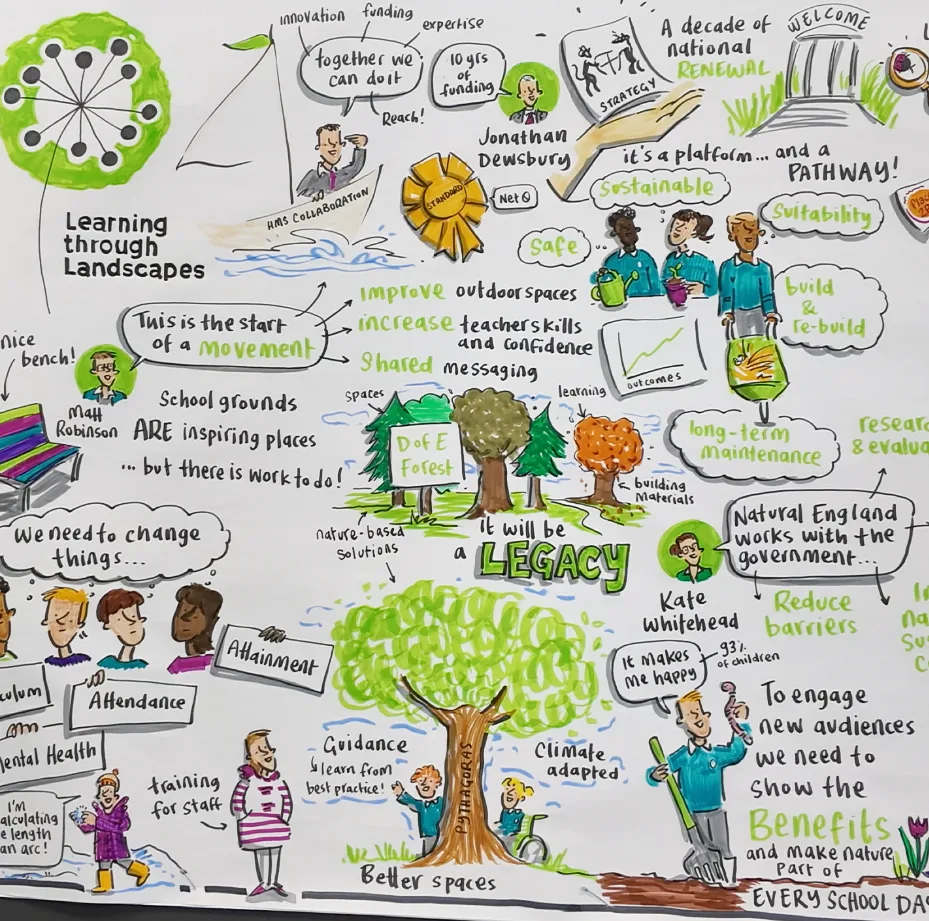 innovation
funding
expertise
together we
can do it
Reach!
HMS COLLABORATION
10 yrs
of
funding
Jonathan
Dewsbury
STANDARD
STRATEGY
A decade of
national
RENEWAL
WELCOME
it's a platform... and a
PATHWAY!
Learning
through
Landscapes
Sustainable
Safe
Suitability
build
&
re-build
OUTCOMES
long-term
maintenance
nice
bench!
This is the start
of a MOVEMENT
Matt
Robinson
improve outdoor spaces
increase teacher skills
and confidence
Shared messaging
School grounds
ARE inspiring places
... but there is work to do!
spaces
learning
D of E
Forest
building
materials
nature-based
solutions
it will be
a LEGACY
Natural England
works with the
government...
Kate
Whitehead
Reduce
barriers
We need to change
things...
Attainment
Attendance
Mental Health
I'm
calculating
length
an arc!
training
for staff
Guidance
learn from
best practice!
PYTHAGORAS
Climate
adapted
Better spaces
It makes
me happy
93%
of children
To engage
new audiences
we need to
show the
Benefits
and make nature
part of
EVERY SCHOOL DAY